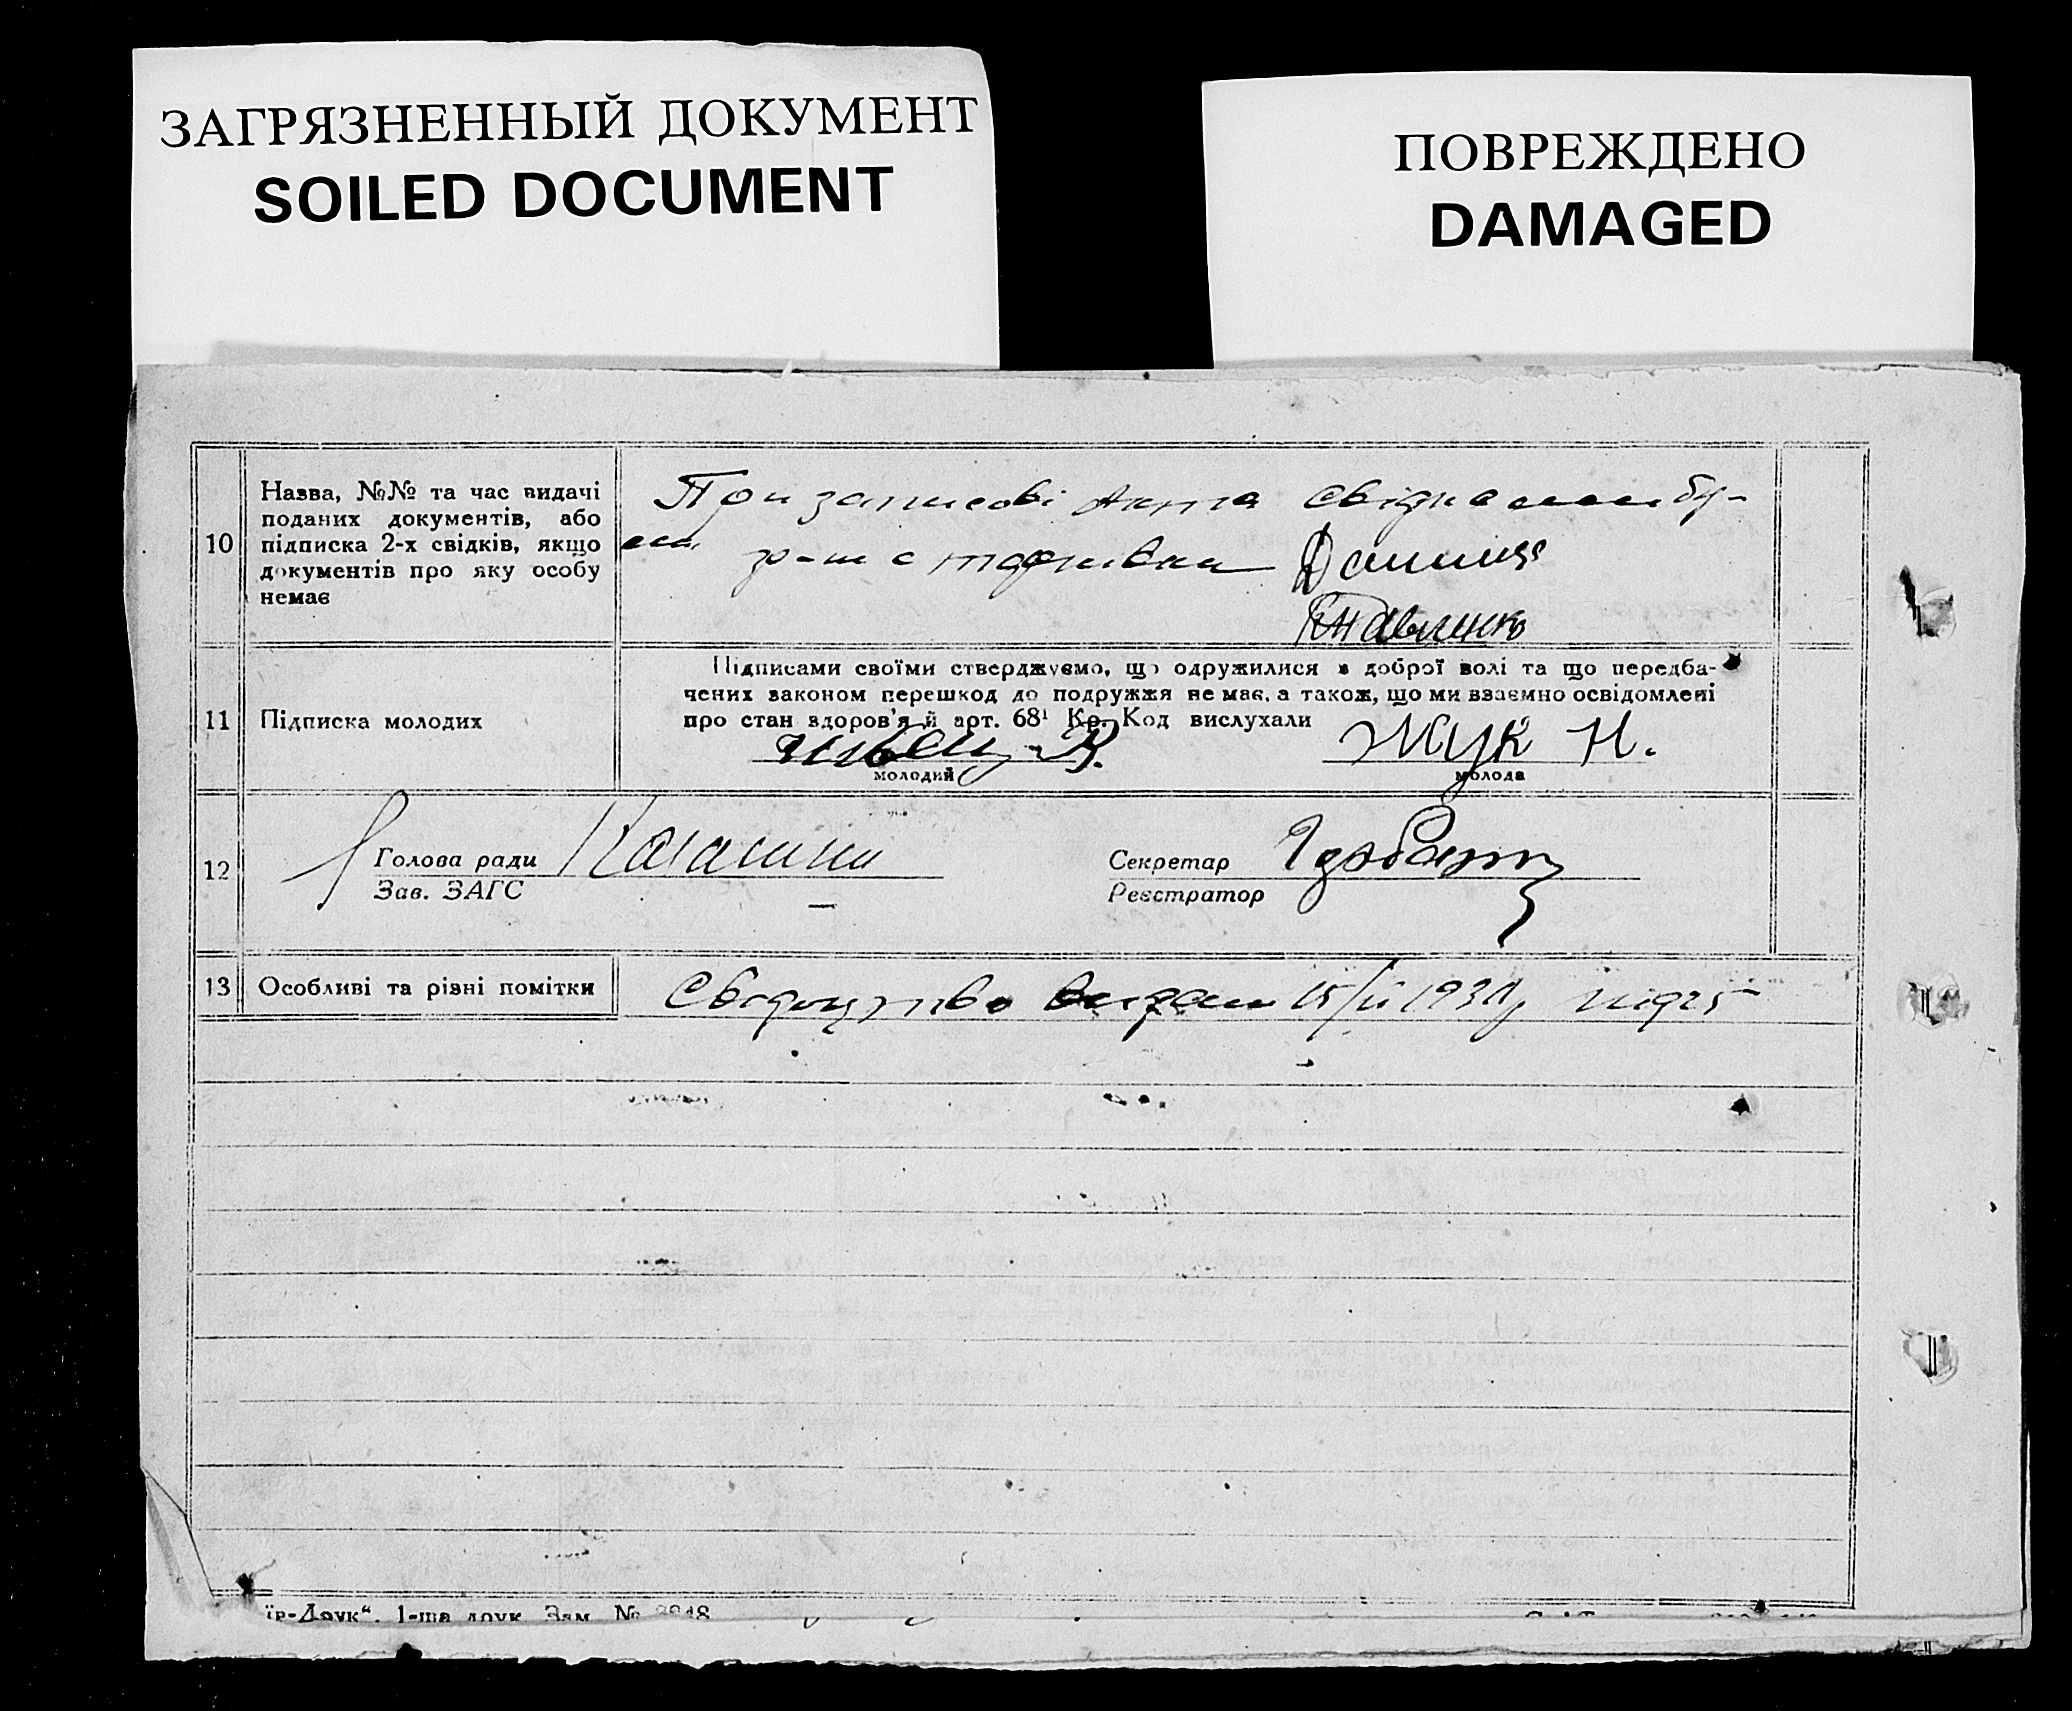 ЗАГРЯЗНЕННЫЙ ДОКУМЕНТ
SOILED DOCUMENT
ПОВРЕЖДЕНО
DAMAGED
10
Назва, №№ та час видачі
поданих документів, або
підписка 2-х свідків, якщо
документів про яку особу
немає
При записові Акта Свідками бу-
ли
11
Підписка молодих
Підписами своїми стверджуємо, що одружилися з доброї волі та що передба-
чених законом перешкод до подружжя не має, а також, що ми взаємно освідомлені
про стан здоров'я й арт. 68¹ Кр. Код вислухали
Жук Н.
молодий
молода
12
Голова ради
Зав. ЗАГС
Секретар
Реєстратор
13
Особливі та різні помітки
Свідоцтво видано 15/
їв-Друк“. 1-ша друк. Зам. №